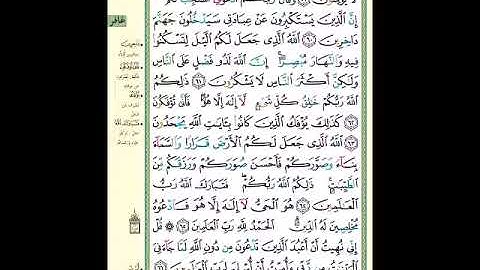 لَا يُؤْمِنُونَ ۝٥٩ وَقَالَ رَبُّكُمُ ٱدْعُونِىٓ أَسْتَجِبْ لَكُمْ
إِنَّ ٱلَّذِينَ يَسْتَكْبِرُونَ عَنْ عِبَادَتِى سَيَدْخُلُونَ جَهَنَّمَ
دَاخِرِينَ ۝٦٠ ٱللَّهُ ٱلَّذِى جَعَلَ لَكُمُ ٱلَّيْلَ لِتَسْكُنُوا۟
فِيهِ وَٱلنَّهَارَ مُبْصِرًا إِنَّ ٱللَّهَ لَذُو فَضْلٍ عَلَى ٱلنَّاسِ
وَلَٰكِنَّ أَكْثَرَ ٱلنَّاسِ لَا يَشْكُرُونَ ۝٦١ ذَٰلِكُمُ
ٱللَّهُ رَبُّكُمْ خَٰلِقُ كُلِّ شَىْءٍ لَّآ إِلَٰهَ إِلَّا هُوَ فَأَنَّىٰ تُؤْفَكُونَ
۝٦٢ كَذَٰلِكَ يُؤْفَكُ ٱلَّذِينَ كَانُوا۟ بِـَٔايَٰتِ ٱللَّهِ يَجْحَدُونَ
۝٦٣ ٱللَّهُ ٱلَّذِى جَعَلَ لَكُمُ ٱلْأَرْضَ قَرَارًا وَٱلسَّمَآءَ
بِنَآءً وَصَوَّرَكُمْ فَأَحْسَنَ صُوَرَكُمْ وَرَزَقَكُم مِّنَ
ٱلطَّيِّبَٰتِ ذَٰلِكُمُ ٱللَّهُ رَبُّكُمْ فَتَبَارَكَ ٱللَّهُ رَبُّ
ٱلْعَٰلَمِينَ ۝٦٤ هُوَ ٱلْحَىُّ لَآ إِلَٰهَ إِلَّا هُوَ فَٱدْعُوهُ
مُخْلِصِينَ لَهُ ٱلدِّينَ ٱلْحَمْدُ لِلَّهِ رَبِّ ٱلْعَٰلَمِينَ ۝٦٥ قُلْ
إِنِّى نُهِيتُ أَنْ أَعْبُدَ ٱلَّذِينَ تَدْعُونَ مِن دُونِ ٱللَّهِ لَمَّا جَآءَنِىَ
ٱلْبَيِّنَٰتُ مِن رَّبِّى وَأُمِرْتُ أَنْ أُسْلِمَ لِرَبِّ ٱلْعَٰلَمِينَ ۝٦٦
غافر